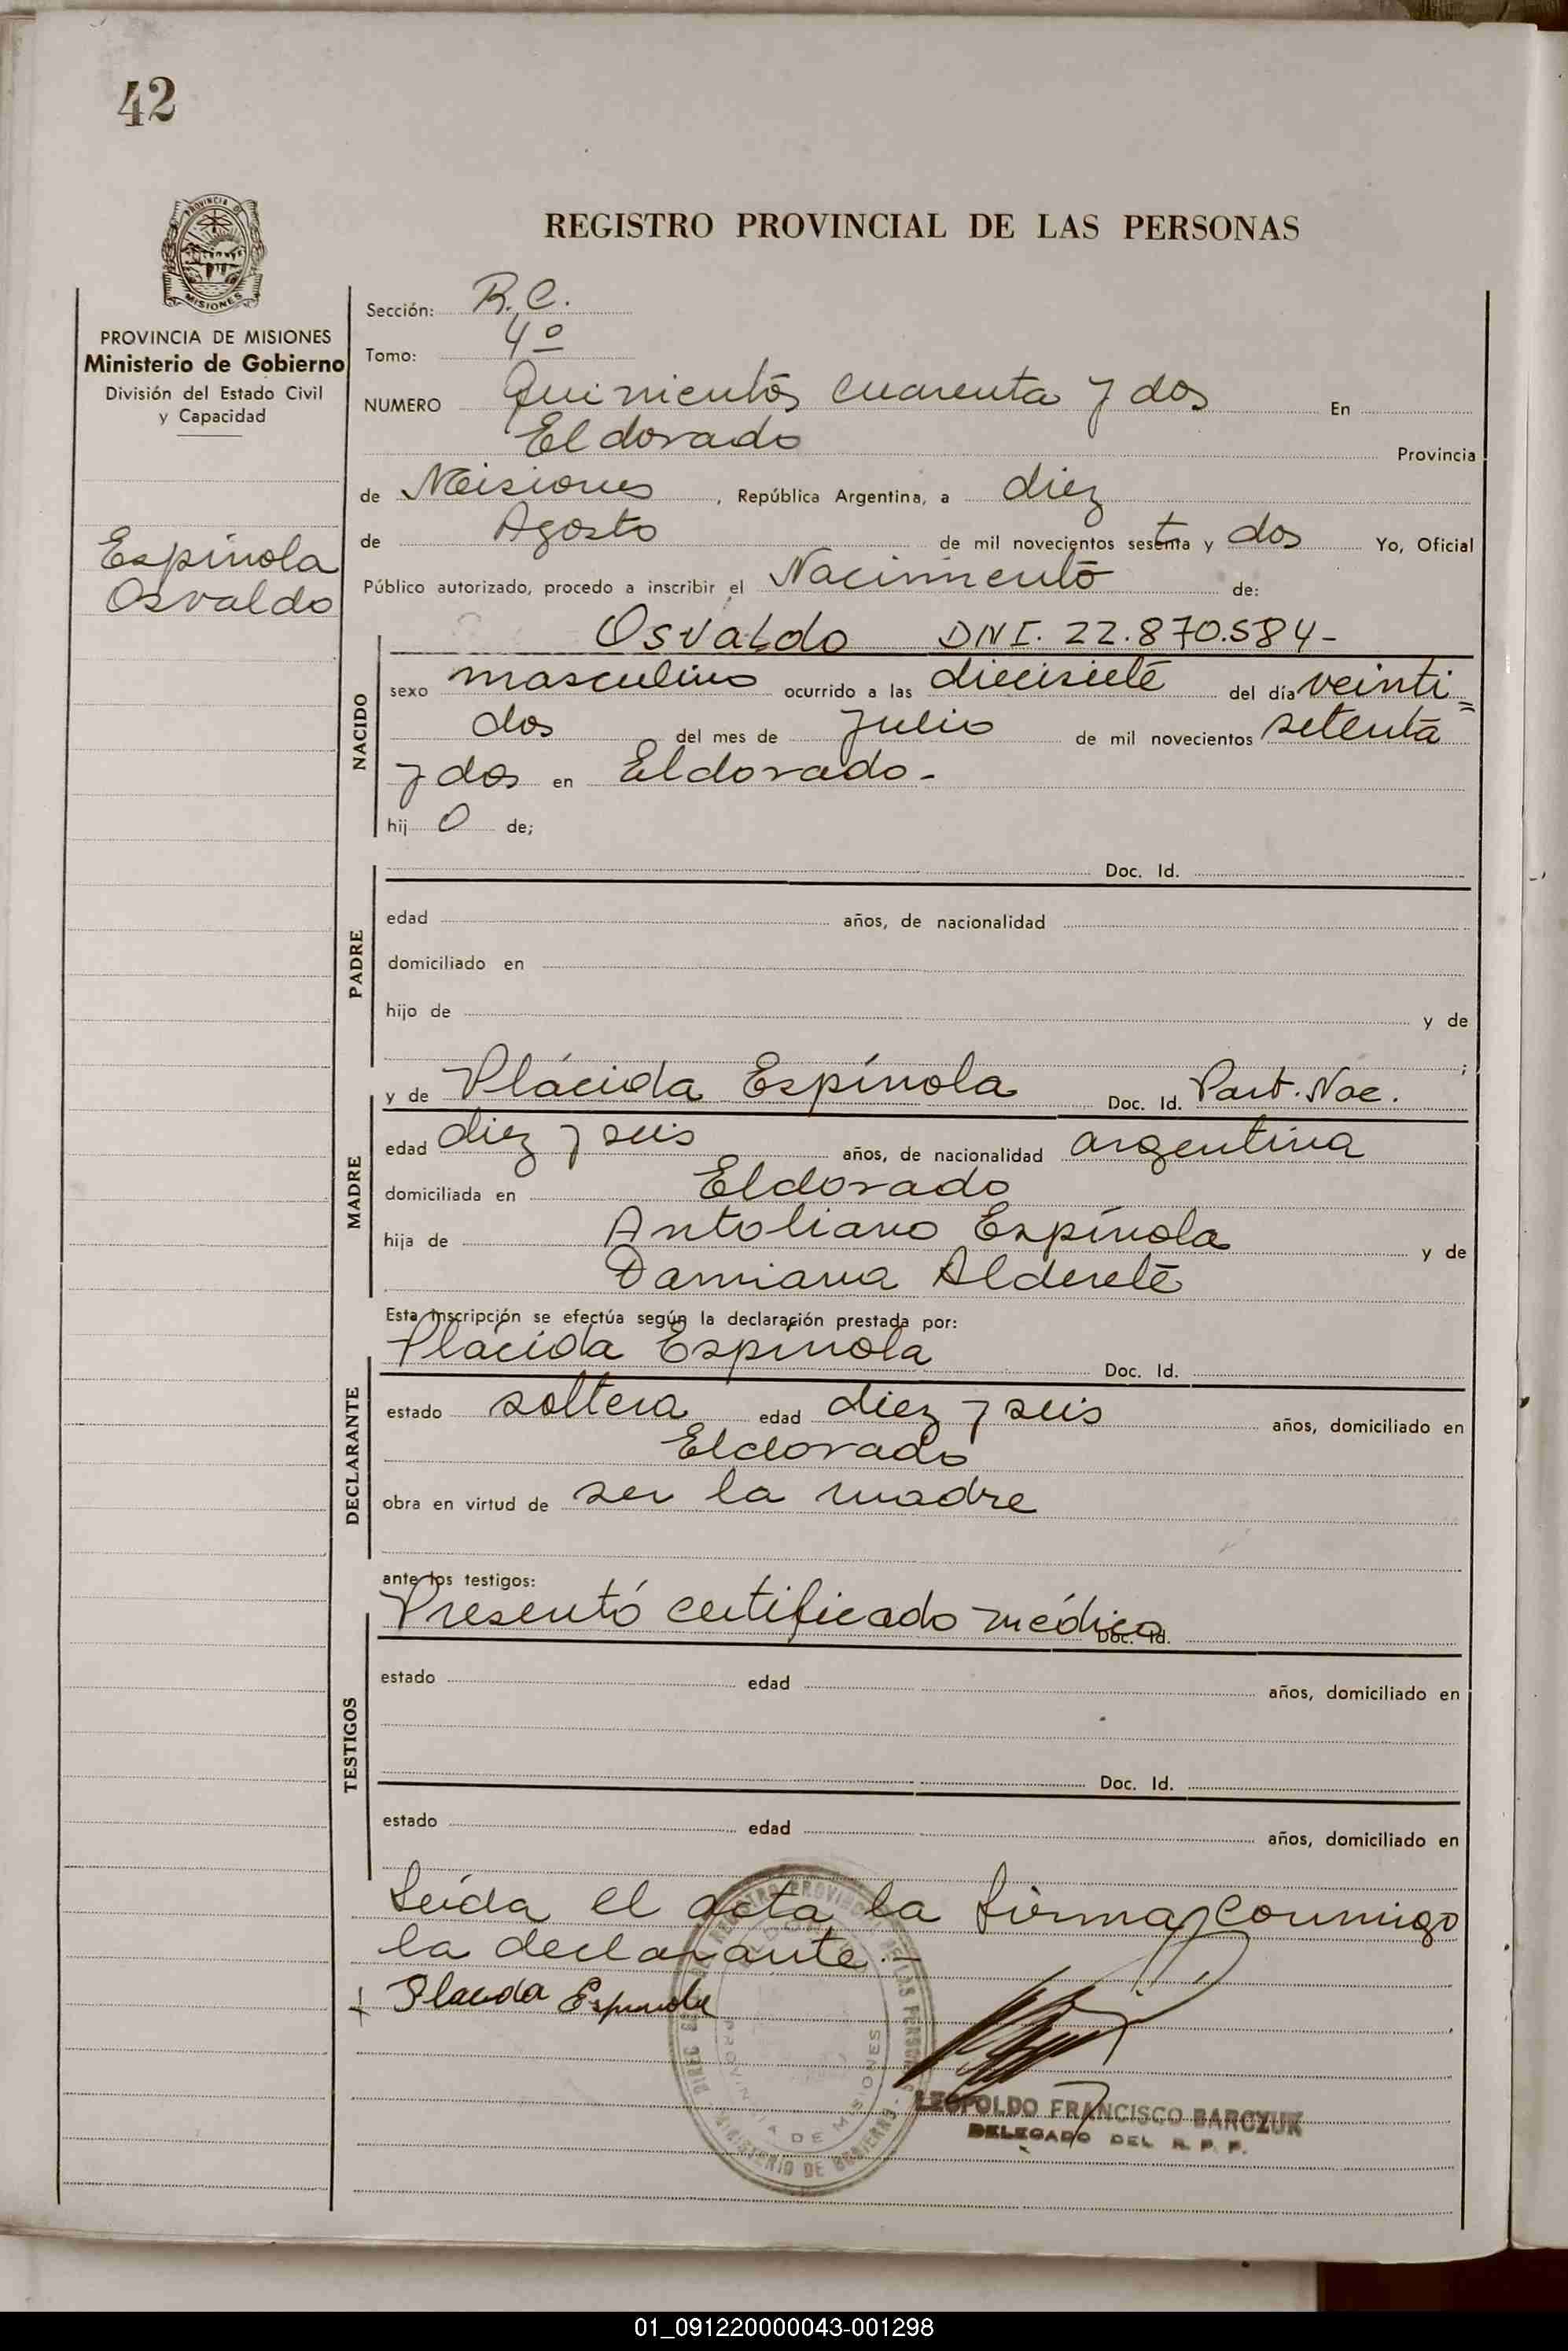 42
REGISTRO PROVINCIAL DE LAS PERSONAS
PROVINCIA DE MISIONES
PROVINCIA DE MISIONES
Ministerio de Gobierno
División del Estado Civil
y Capacidad
Espínola
Osvaldo
Sección: R.C.
Tomo: 4º
NUMERO Quinientos cuarenta y dos En
Eldorado Provincia
de Misiones, República Argentina, a diez
de Agosto de mil novecientos sesenta y dos Yo, Oficial
Público autorizado, procedo a inscribir el Nacimiento de:
Osvaldo DNI. 22.870.584-
NACIDO
sexo masculino ocurrido a las diecisiete del día veinti=
dos del mes de Julio de mil novecientos setenta
y dos en Eldorado.-
hijo de;
PADRE
Doc. Id.
edad años, de nacionalidad
domiciliado en
hijo de y de
;
MADRE
y de Plácida Espínola Doc. Id. Part. Nac.
edad diez y seis años, de nacionalidad argentina
domiciliada en Eldorado
hija de Antoliano Espínola y de
Damiana Alderete
Esta inscripción se efectúa según la declaración prestada por:
DECLARANTE
Plácida Espínola Doc. Id.
estado soltera edad diez y seis años, domiciliado en
Eldorado
obra en virtud de ser la madre
ante los testigos:
TESTIGOS
Presentó certificado médico Doc. Id.
estado edad años, domiciliado en
Doc. Id.
estado edad años, domiciliado en
Leída el acta la firma conmigo
la declarante.-
Placida Espinola
PROVINCIA DE MISIONES
MINISTERIO DE GOBIERNO
LEOPOLDO FRANCISCO BARCZUK
DELEGADO DEL R. P. P.
01_091220000043-001298